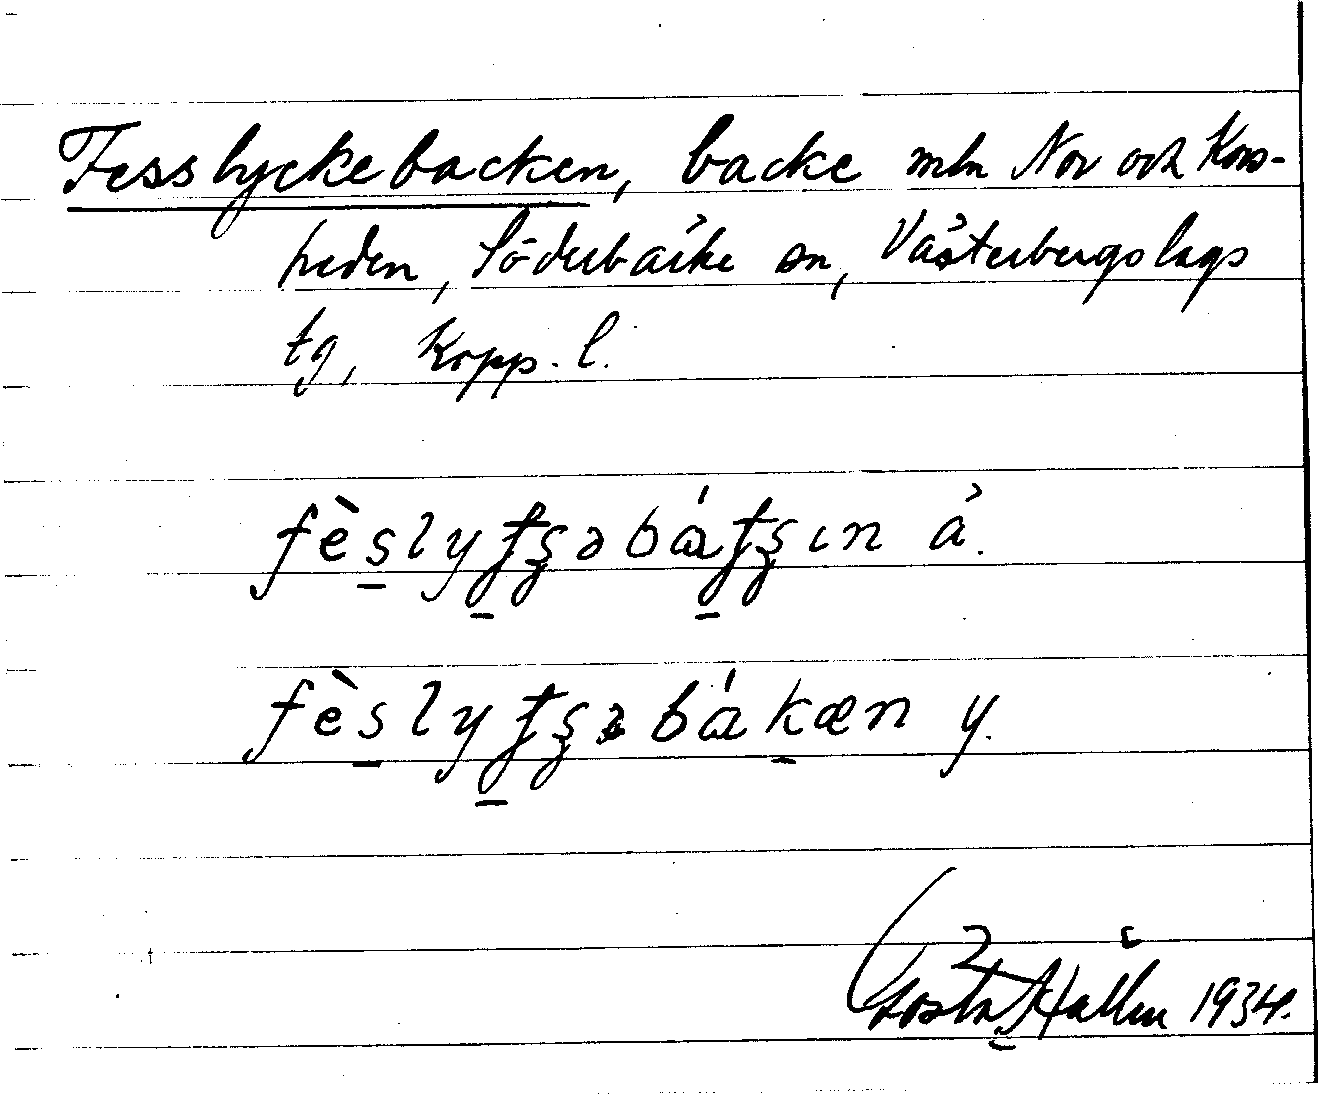 Fesslyckebacken, backe mln Nor och Kors-
heden, Söderbärke sn, Västerbergslags
tg, Kopp. l.
fèslyʈʂəbáʈʂın ä.
fèslyʈʂəbákæn y.
Gösta Hallén 1934.